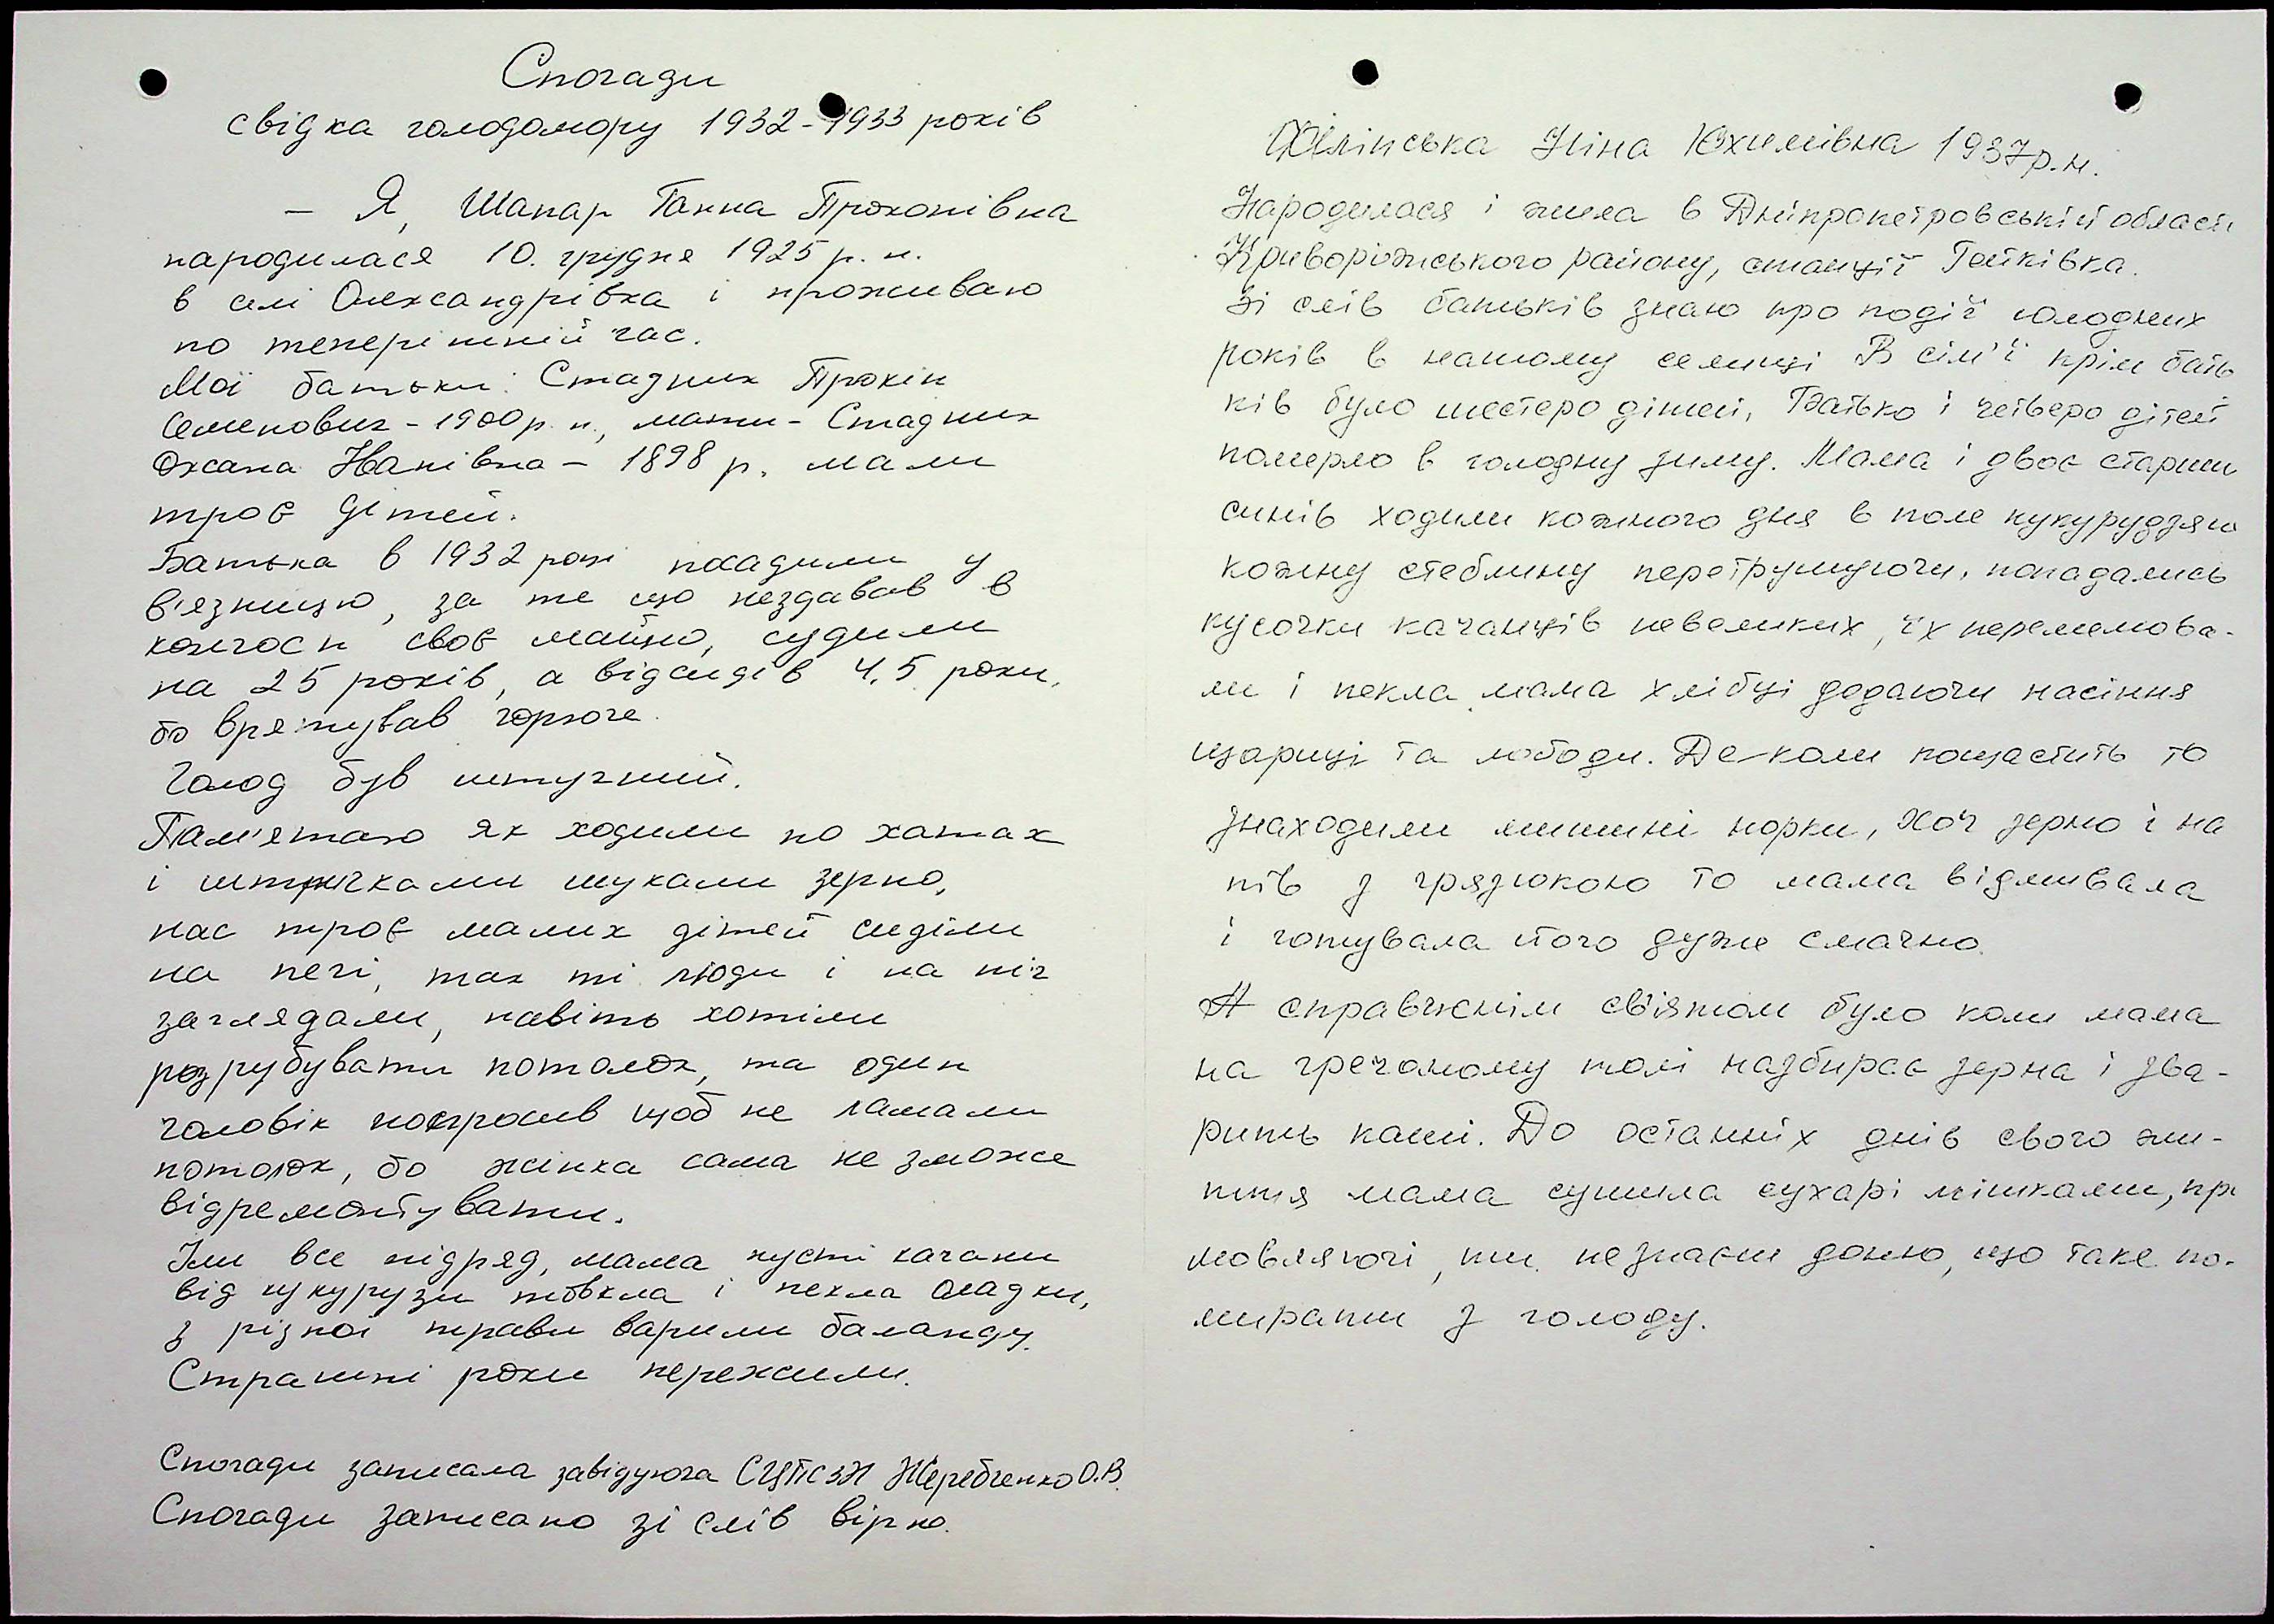 Спогади
свідка голодомору 1932-1933 років
- Я, Шапар Ганна Прокопівна
народилася 10. грудня 1925 р. н.
в селі Олександрівка і проживаю
по теперішній час.
Мої батьки: Стадник Прокіп
Семенович - 1900 р. н., мати - Стадник
Оксана Іванівна - 1898 р. мали
троє дітей.
Батька в 1932 році посадили у
в'язницю, за те що нездавав в
колгосп своє майно, судили
на 25 років, а відсидів 4,5 роки,
бо врятував горюче.
Голод був штучний.
Пам'ятаю як ходили по хатах
і штричками шукали зерно,
нас троє малих дітей сиділи
на печі, так ті люди і на піч
заглядали, навіть хотіли
розрубувати потолок, та один
чоловік попросив щоб не ламали
потолок, бо жінка сама не зможе
відремонтувати.
Їли все підряд, мама пусті качани
від кукурузи товкла і пекла оладки,
з різної трави варили баланду.
Страшні роки пережили.
Спогади записала завідуюча Жеребченко О.В.
Спогади записано зі слів вірно.
Філінська Ніна Юхимівна 1937р.н.
Народилася і жила в Дніпропетровській області
Криворіжського району, станції Гейківка.
Зі слів батьків знаю про події голодних
років в нашому селищі В сім'ї крім бать
ків було шестеро дітей, Батько і четверо дітей
померло в голодну зиму. Мама і двоє старши
синів ходили кожного дня в поле кукурудзян
кожну стеблину перетрушуючи, попадались
кусочки качанців невеликих, їх перемелюва-
ли і пекла мама хлібці додаючи насіння
щариці та лободи. Де-коли пощастить то
знаходили мишині норки, хоч зерно і на
пів з грязюкою то мама відмивала
і готувала його дуже смачно.
А справжнім святом було коли мама
на гречаному полі назбирає зерна і зва-
рить каші. До останніх днів свого жи-
ття мама сушила сухарі мішками, при
мовляючі, ти незнаєш доню, що таке по-
мирати з голоду.